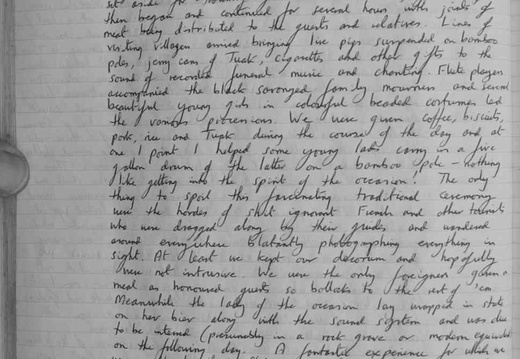 set aside for
then began and continued for several hours with joints of
meat being distributed to the guests and relatives. Lines of
visiting villagers arrived bringing live pigs suspended on bamboo
poles, jerry cans of Tuak, cigarettes and other gifts to the
sound of recorded funeral music and chanting. Flute players
accompanied the black saronged family mourners and several
beautiful young girls in colourful beaded costumes led
the various processions. We were given coffee, biscuits,
pork, rice and Tuak during the course of the day and at
one point I helped some young lads carry in a five
gallon drum of the latter on a bamboo pole - nothing
like getting into the spirit of the occasion! The only
thing to spoil this fascinating traditional ceremony
were the hordes of shit ignorant French and other tourists
who were dragged along by their guides and wandered
around everywhere blatantly photographing everything in
sight. At least we kept our decorum and hopefully
were not intrusive. We were the only foreigners given a
meal as honoured guests so bollocks to the rest of 'em
Meanwhile the lady of the occasion lay wrapped in state
on her bier along with the sound system and was due
to be interred (presumably in a rock grave or modern equivalent
on the following day. A fantastic experience for which we